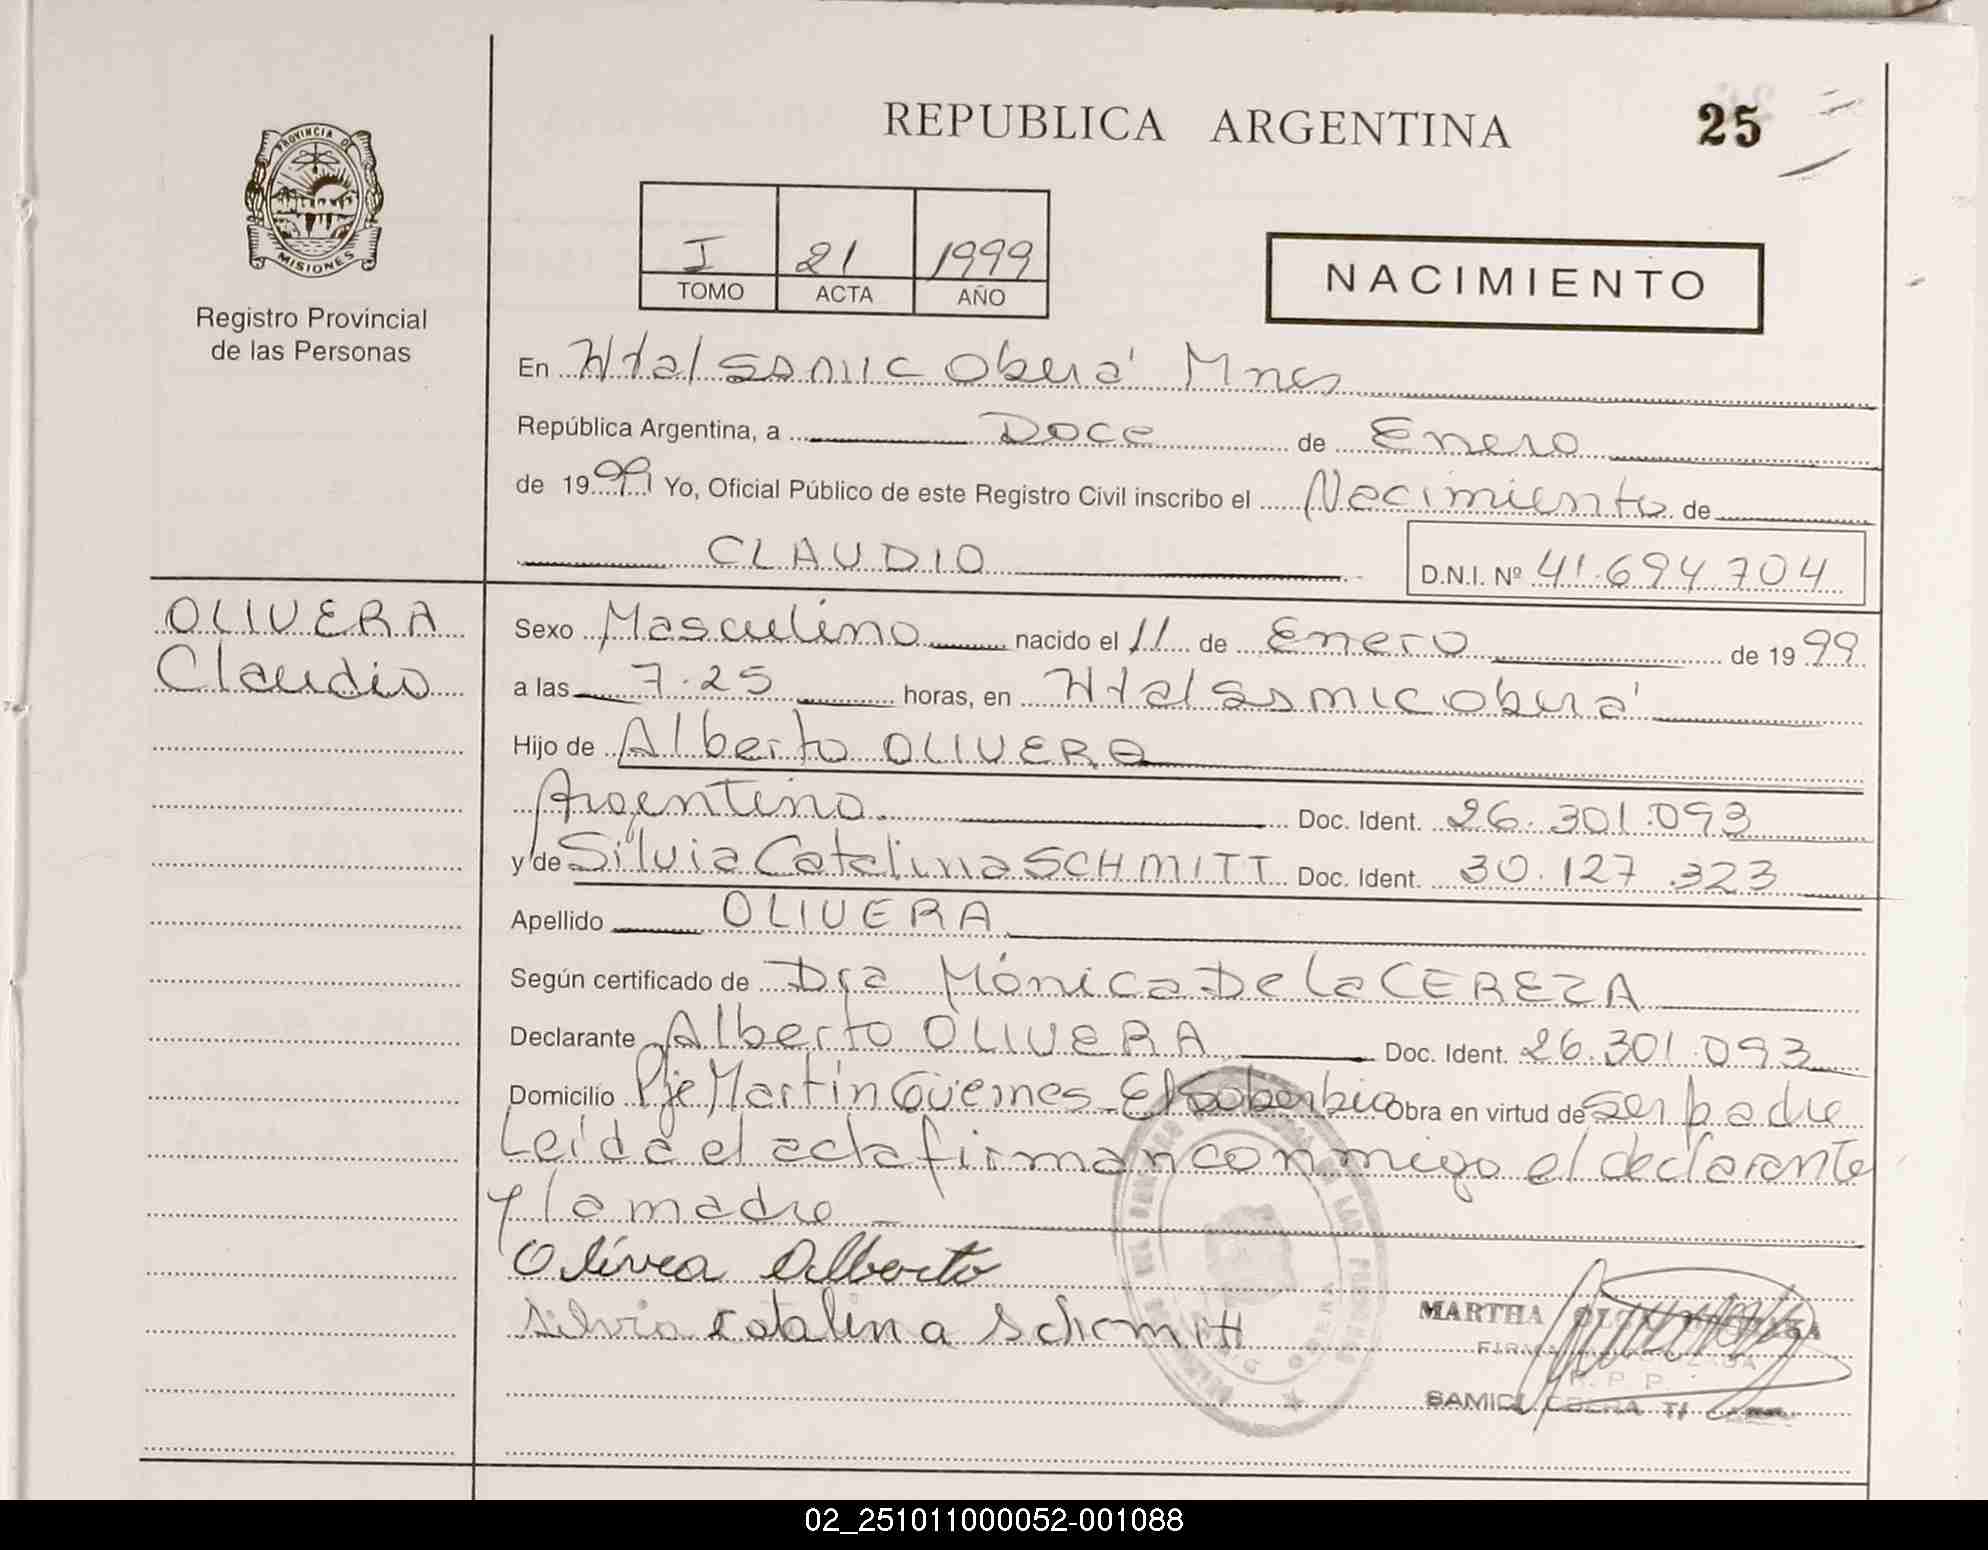 REPUBLICA ARGENTINA
25
PROVINCIA DE
MISIONES
Registro Provincial
de las Personas
I 21 1999
TOMO ACTA AÑO
NACIMIENTO
En Htal Samic Oberá Mnes
República Argentina, a Doce de Enero
de 1999 Yo, Oficial Público de este Registro Civil inscribo el Nacimiento de
CLAUDIO
D.N.I. Nº 41.694.704
OLIVERA
Claudio
Sexo Masculino nacido el 11 de Enero de 1999
a las 7.25 horas, en Htal Samic Oberá
Hijo de Alberto OLIVERA
Argentino. Doc. Ident. 26.301.093
y de Silvia Catalina SCHMITT Doc. Ident. 30.127.323
Apellido OLIVERA
Según certificado de Dra Mónica De La CEREZA
Declarante Alberto OLIVERA Doc. Ident. 26.301.093
Domicilio Pje Martín Güemes - El Soberbio Obra en virtud de ser padre
Leída el acta firman conmigo el declarante
y la madre -
Olivea Alberto
Silvia catalina Schcmitt
MARTHA OLGA
FIRMA
R. P. P.
SAMIC OBERA
02_251011000052-001088